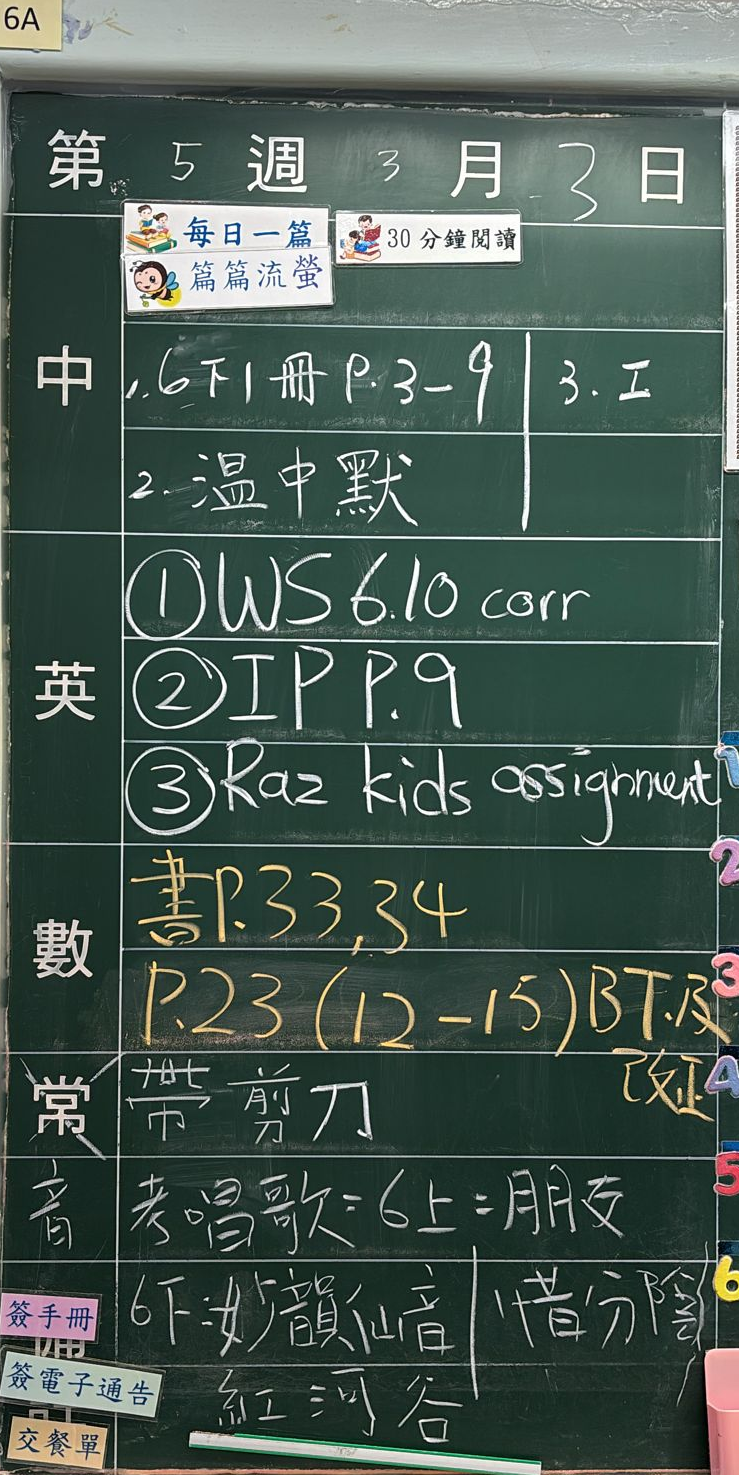 6A
第 5 週 3 月 3 日
每日一篇
篇篇流螢
30分鐘閱讀
中
1. 6下1冊 P.3-9
3. 工
2. 溫中默
英
①WS 6.10 corr
②IP P.9
③Raz kids assignment
數
書P.33,34
P.23 (12-15) BT.及
改正
常
帶剪刀
音
考唱歌: 6上: 朋友
6下:妙韻仙音
惜分陰
紅河谷
簽手冊
簽電子通告
交餐單
1
2
3
4
5
6